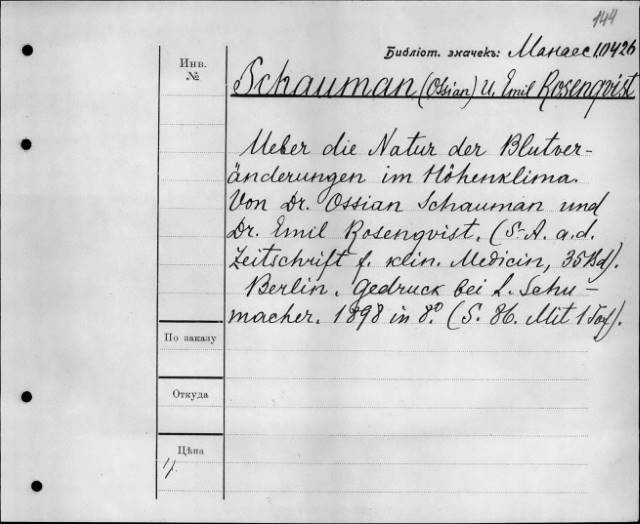 144
Библіот. значекъ: Манасс 1.0426
Инв.
№
Schauman (Ossian) u. Emil Rosenqvist
Ueber die Natur der Blutver-
änderungen im Höhenklima.
Von Dr. Ossian Schauman und
Dr. Emil Rosenqvist. (S-A. a.d.
Zeitschrift f. klin. Medicin, 35 Bd).
Berlin. Gedruck bei L. Schu-
macher. 1898 in 8º. (S. 86. Mit 1 Taf).
По заказу
Откуда
Цѣна